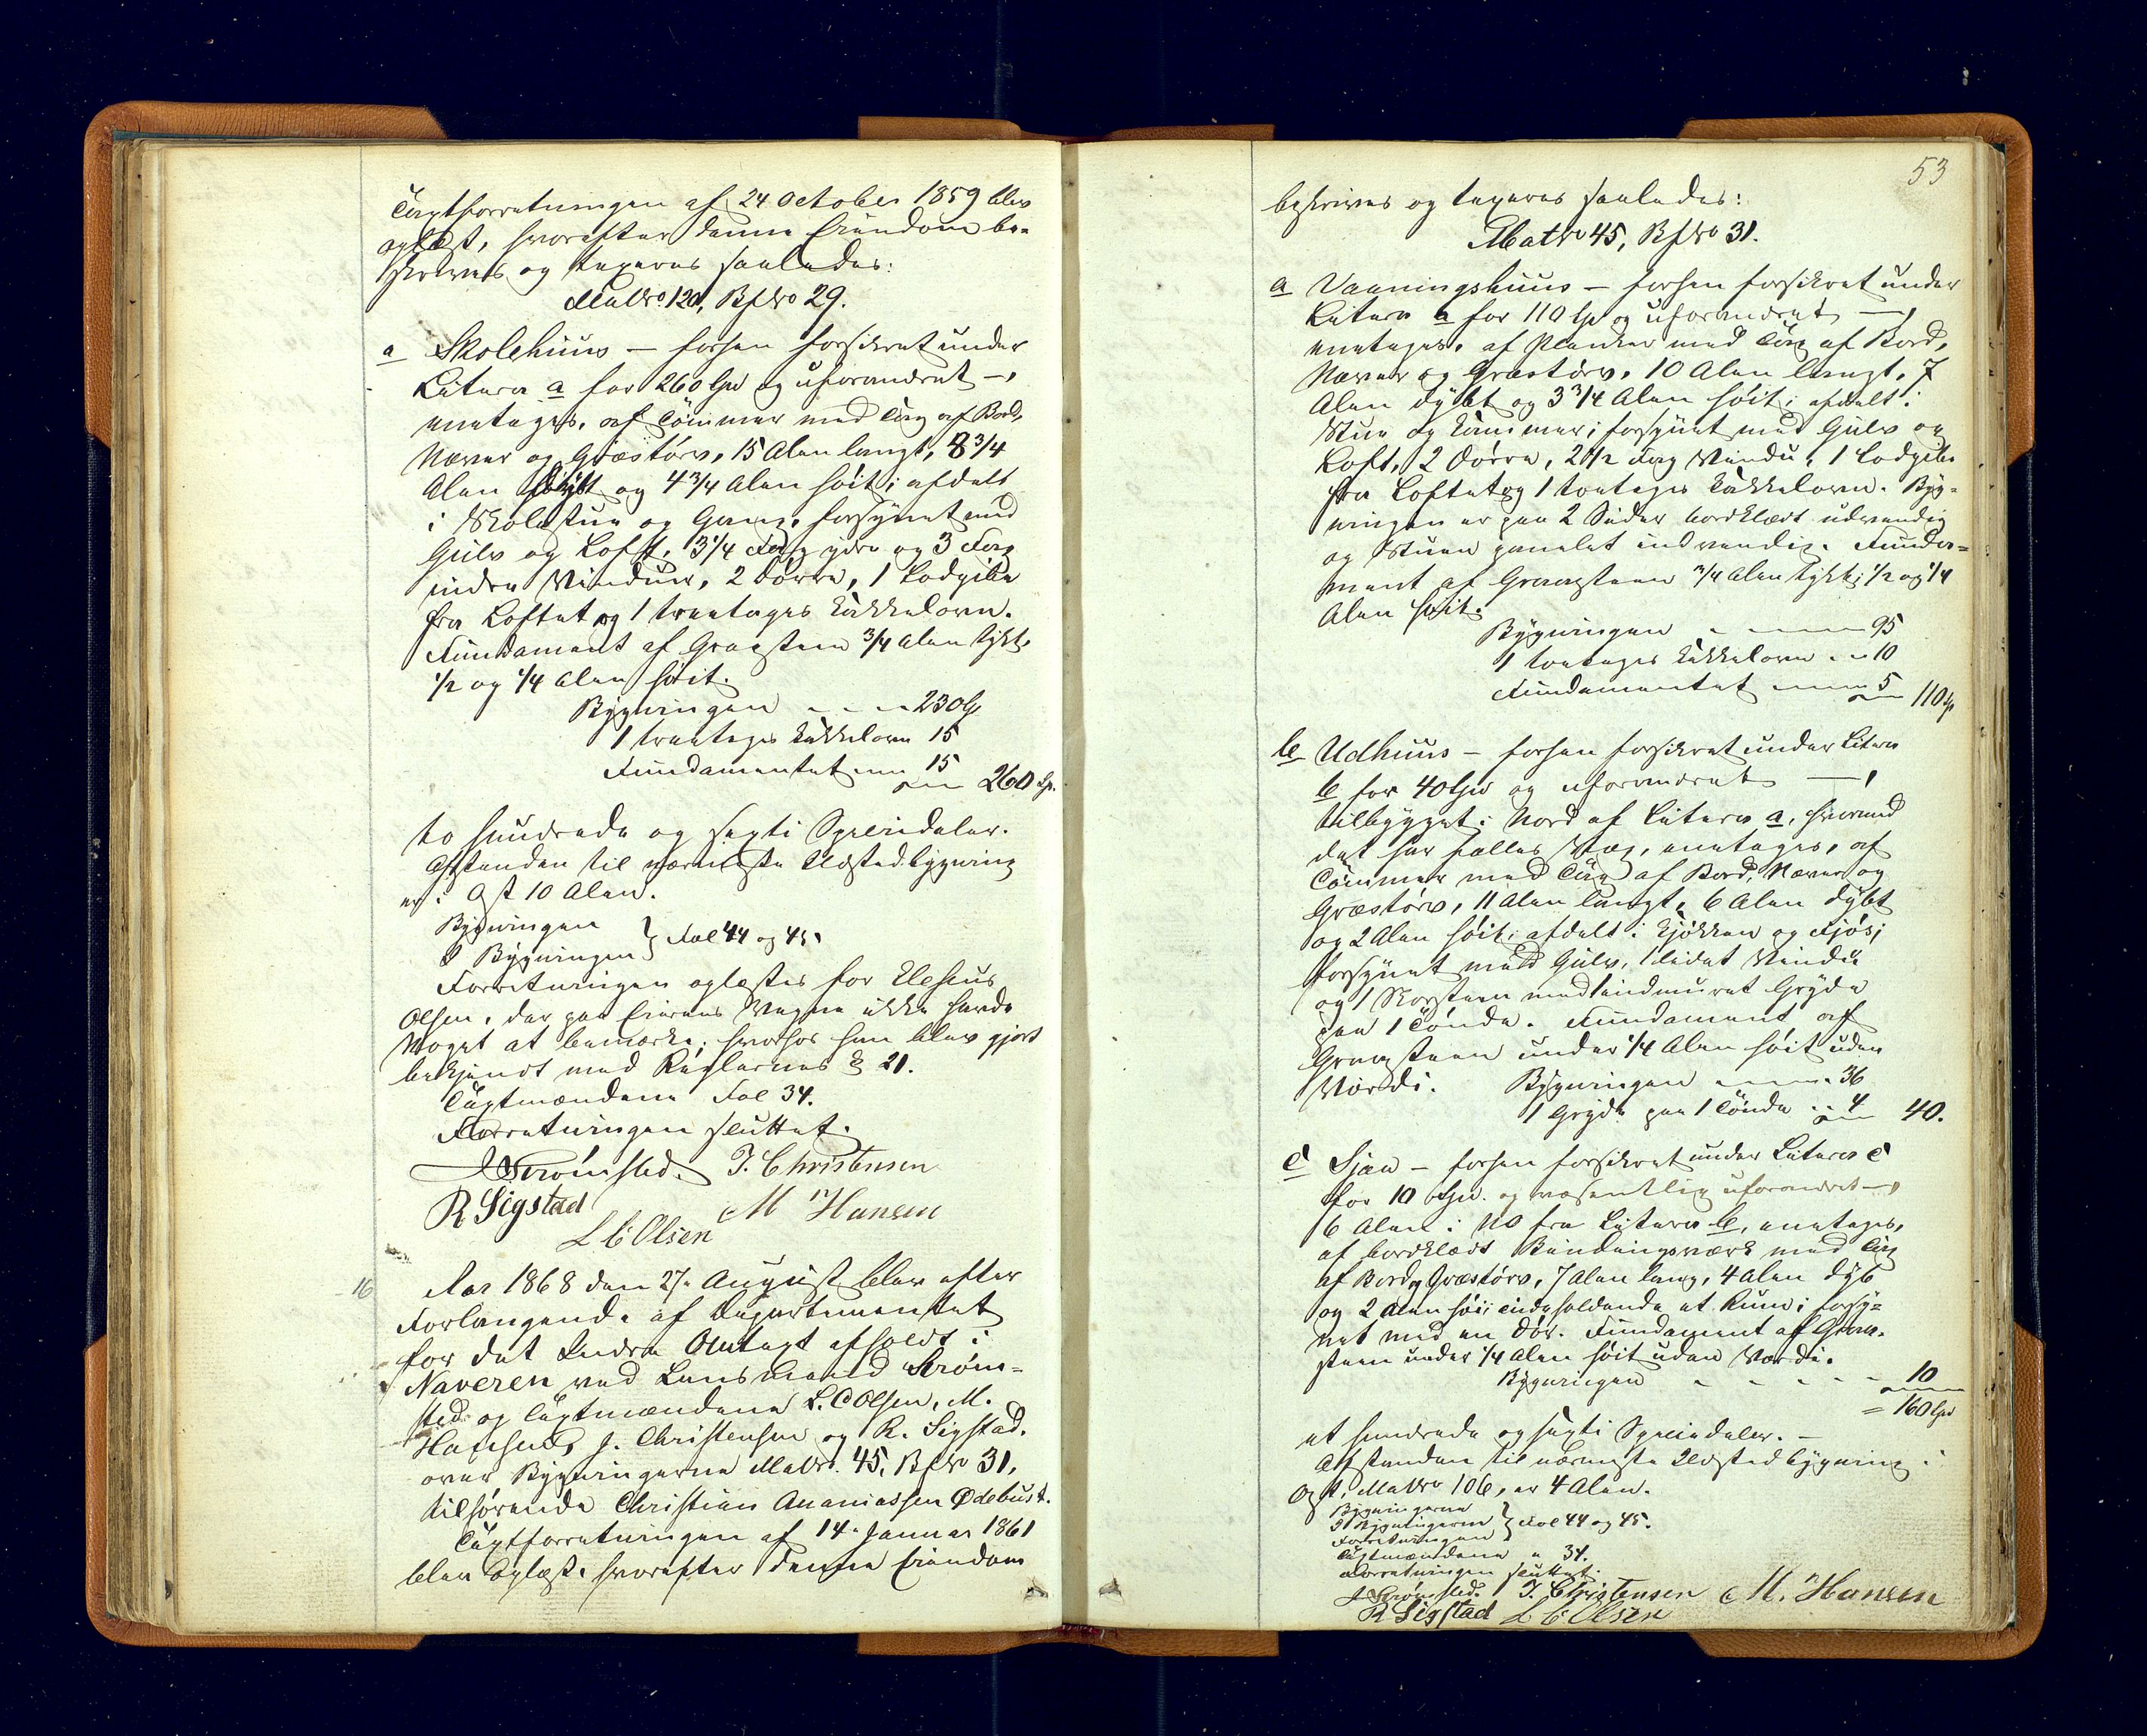 Taxtforretningen af 24 October 1859 blev
oplæst, hvorefter denne Eiendom be-
skrives og taxeres saaledes:
MatNo. 120, BfNo 29.
a Skolehuus – forhen forsikret under
Litera a for 260 Spd og uforandret –,
eenetages, af Tömmer med Tag af Bord,
Næver og Græstörv, 15 Alen langt, 8 3/4
Alen dybt og 4 3/4 Alen höit; afdelt
i Skolestue og Gang, forsynet med
Gulv og Loft, 3 1/4 Fag ydre og 3 Fag
indre Vinduer, 2 Dörre, 1 Lodpibe
fra Loftet og 1 treetages Kakkelovn.
Fundament af Graasteen 3/4 Alen tykt,
1/2 og 1/4 Alen höit.
Bygningen - - - 230 Sp
1 treetages Kakkelovn 15
Fundamentet 15
260 Sp.
to hundrede og sexti Speciedaler.
Afstanden til nærmeste Ildstedbygning
er i Ost 10 Alen.
Bygningen
I Bygningen } Fol 44 og 45.
Forretningen oplæstes for Elesius
Olsen, der paa Eierens Vegne ikke havde
Noget at bemærke; hvorhos han blev gjort
bekjendt med Reglernes § 21.
Taxtmændene Fol 34.
Forretningen sluttet.
J Strömsted. J. Christensen
R Sigstad M Hansen
L C Olsen
16 Aar 1868 den 27. August blev efter
Forlangende af Departementet
for det Indre Omtaxt afholdt i
Naveren ved Lensmand Ström-
sted og Taxtmændene L. C Olsen, M.
Hansen, J. Christensen og R. Sigstad,
over Bygningerne MatNo. 45, BfNo 31,
tilhörende Christian Ananiassen Ødebust.
Taxtforretningen af 14. Januar 1861
blev oplæst, hvorefter denne Eiendom
53
beskrives og taxeres saaledes:
MatNo 45, BfNo 31.
a Vaaningshuus – forhen forsikret under
Litera a for 110 Sp og uforandret –,
eenetages, af Planker med Tag af Bord,
Næver og Græstörv, 10 Alen langt, 7
Alen dybt og 3 3/4 Alen höit; afdelt i
Stue og Kammer; forsynet med Gulv og
Loft, 2 Dörre, 2 1/2 Fag Vindu, 1 Lodpibe
fra Loftet og 1 toetages Kakkelovn. Byg-
ningen er paa 2 Sider bordklædt udvendig
og Stuen panelet indvendig. Funda-
ment af Graasteen 3/4 Alen tykt, 1/2 og 1/4
Alen höit.
Bygningen - - - 95
1 toetages Kakkelovn - - 10
Fundamentet 5
110 Sp
b Udhuus – forhen forsikret under Litera
b for 40 Spd og uforandret –,
tilbygget i Nord af Litera a, hvormed
det har fælles Væg, eenetages, af
Tömmer med Tag af Bord, Næver og
Græstörv, 11 Alen langt, 6 Alen dybt
og 2 Alen höit; afdelt i Kjökken og Fjös;
forsynet med Gulv, 1 lidet Vindu
og 1 Skorsteen med indmuret Gryde
paa 1 Tönde. Fundament af
Graasteen under 1/4 Alen höit uden
Værdi. Bygningen - - - 36
1 Gryde paa 1 Tönde - - 4
40.
c Sjaa – forhen forsikret under Litera c
for 10 Spd. og væsentlig uforandret –,
6 Alen i NO fra Litera b, eenetages,
af bordklædt Bindingsværk med Tag
af Bord og Græstörv, 7 Alen lang, 4 Alen dyb
og 2 Alen höi; indeholdende et Rum; forsy-
net med en Dör. Fundament af Graa-
steen under 1/4 Alen höit uden Værdi.
Bygningen - - - - - 10
= 160 Spd
et hundrede og sexti Speciedaler. –
Afstanden til nærmeste Ildstedbygning i
Ost, MatNo 106, er 4 Alen.
Bygningerne
I Bygningerne } Fol 44 og 45.
Forretningen
Taxtmændene " 34.
Forretningen sluttet.
J Strömsted. J. Christensen M. Hansen
R Sigstad L C Olsen